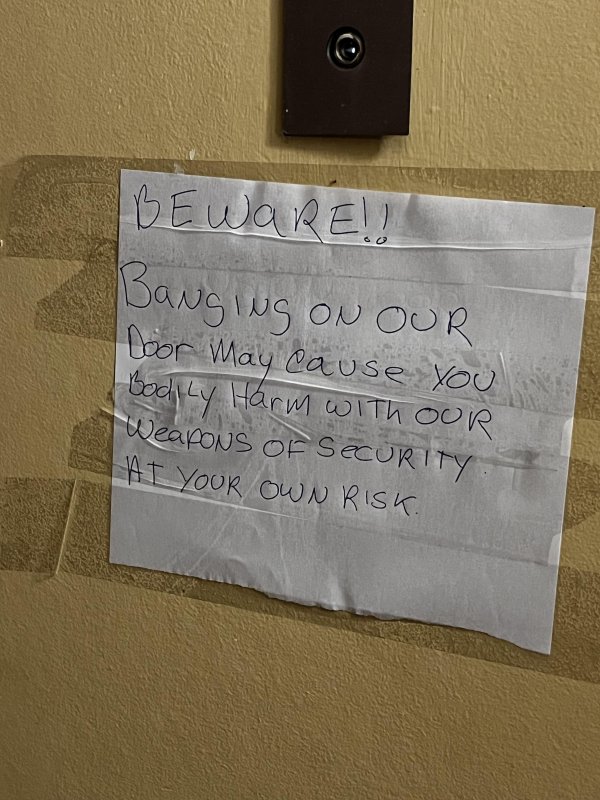 BEWARE!!
BANGING ON OUR
Door May Cause YOU
Bodily Harm WITH OUR
WEAPONS OF SECURITY.
AT YOUR OWN RISK.